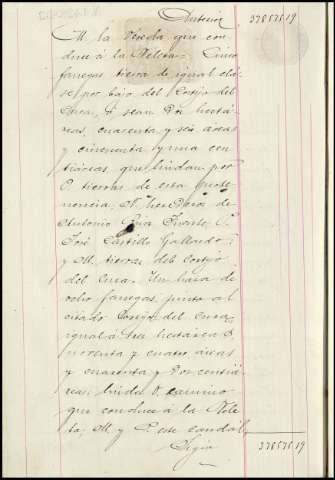 Anterior 37857519
M. la Vereda que con-
duce á la Nileta. Cinco
fanegas tierra de igual cla-
se por bajo del Cortijo del
Cura, ó sean Dos hectá-
reas, cuarenta y seis áreas
y cincuenta y una cen-
tiáreas, que lindan por
O. tierras de esta perte-
nencia, N. herederos de
Antonio Fuente, P.
José Castillo Gallardo,
y M. tierras del Cortijo
del Cura. Un haza de
ocho fanegas, junto al
citado Cortijo del Cura,
igual á tres hectáreas
noventa y cuatro áreas
y cuarenta y dos centiá-
reas; linda O. camino
que conduce á la Nile-
ta, M. y P. este caudal,
Sigue 37857519